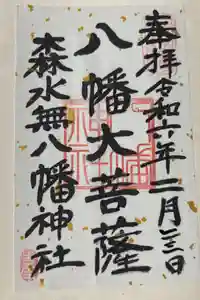 奉拝 令和六年 二月二三日
八幡大菩薩
森水無八幡神社